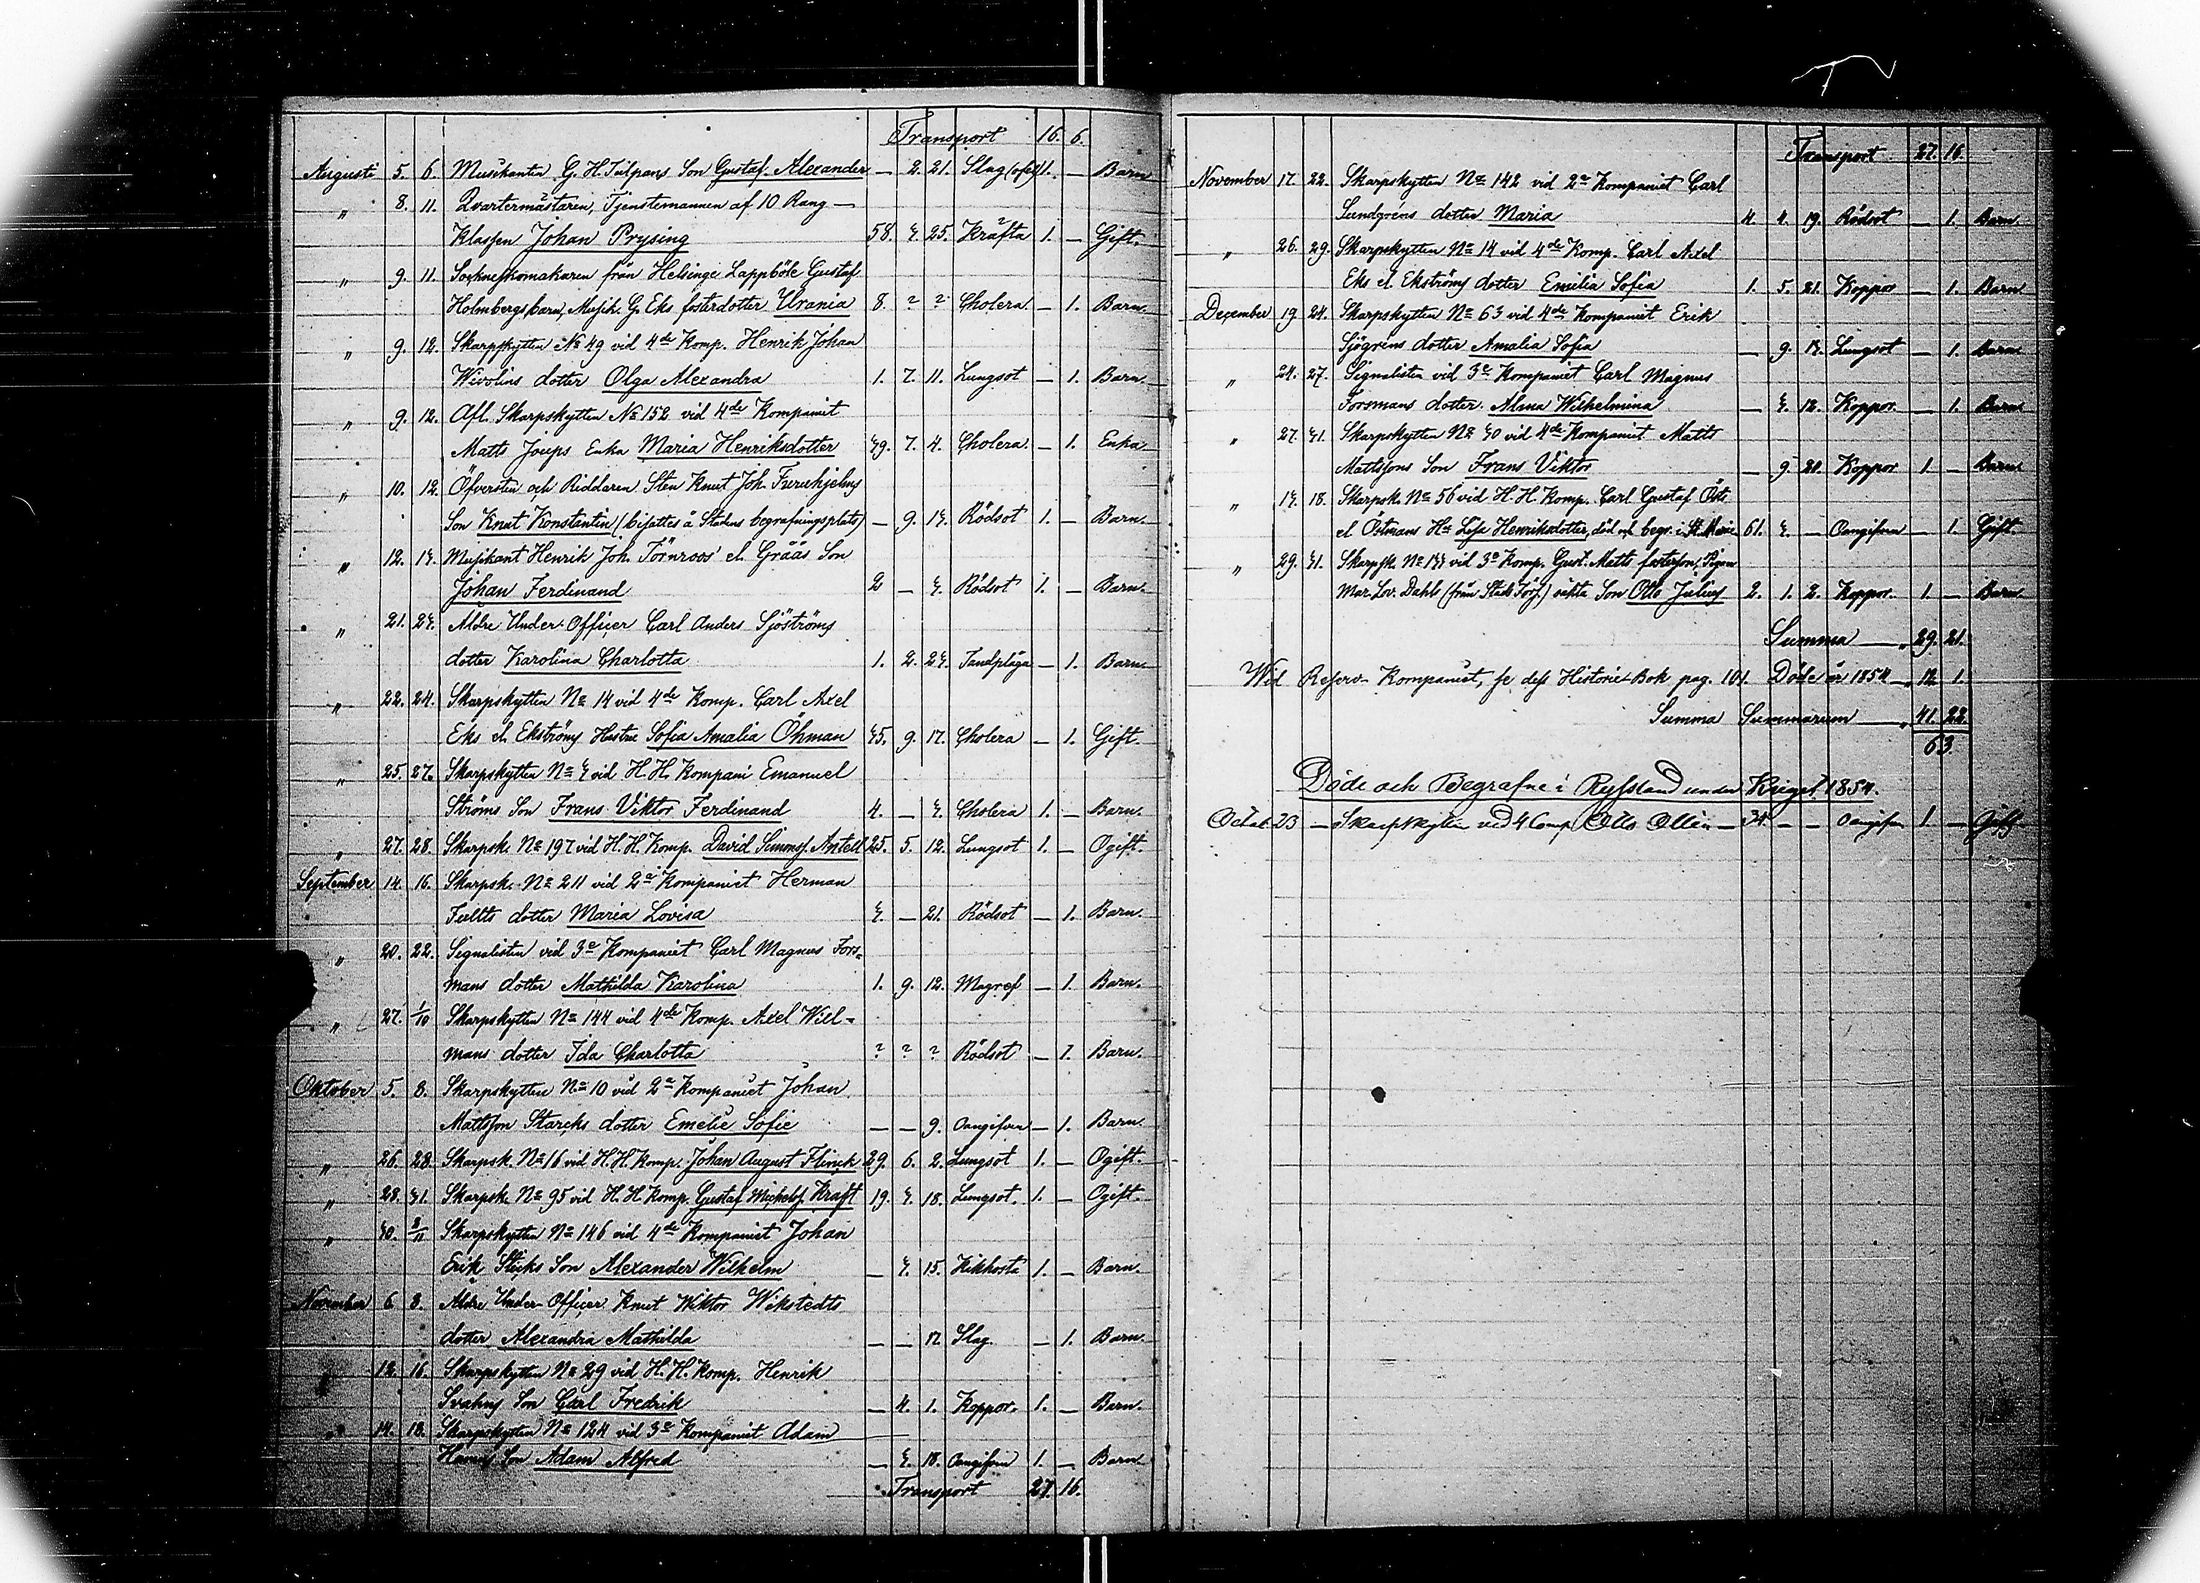 Transport 16. 6.
Augusti 5. 6. Musikanten G. H. Tulpans Son Gustaf Alexander — 2. 21. Slag 1. — Barn
„ 8. 11. Qvartermästaren, Tjenstemannen af 10 Rang —
Klassen Johan Prysing 58. 3. 25. Kräfta 1. — Gift.
„ 9. 11. Sockneskomakaren från Helsinge Lappböle Gustaf
Holmbergs barn, Musik. G. Eks fosterdotter Urania 8. ? ? Cholera — 1. Barn
„ 9. 12. Skarpskytten No 49 vid 4de Komp. Henrik Johan
Wivolins dotter Olga Alexandra 1. 7. 11. Lungsot — 1. Barn
„ 9. 12. Afl. Skarpskytten No 152 vid 4de Kompaniet
Matts Joups Enka Maria Henriksdotter 39. 7. 4. Cholera. — 1. Enka
„ 10. 12. Öfversten och Riddaren Sten Knut Joh. Furuhjelms
Son Knut Konstantin (bisattes å Stadens begrafningsplats) — 9. 13. Rödsot 1. — Barn.
„ 12. 13. Musikant Henrik Joh. Törnroos' el. Gråås Son
Johan Ferdinand 2 — 3. Rödsot 1. — Barn.
„ 21. 23. Äldre Under-Officer Carl Anders Sjöströms
dotter Karolina Charlotta 1. 2. 23. Tandplåga — 1. Barn
„ 22. 24. Skarpskytten No 14 vid 4de Komp. Carl Axel
Eks el. Ekströms Hustru Sofia Amalia Öhman 35. 9. 17. Cholera — 1. Gift.
„ 25. 27. Skarpskytten No 3 vid H. H. Kompani Emanuel
Ströms Son Frans Viktor Ferdinand 4. — 3. Cholera 1. — Barn.
„ 27. 28. Skarpsk. No 197 vid H. H. Komp. David Simonss. Antell 25. 5. 12. Lungsot 1. — Ogift.
September 14. 16. Skarpsk. No 211 vid 2a Kompaniet Herman
dotter Maria Lovisa 3. — 21. Rödsot — 1. Barn.
„ 20. 22. Signalisten vid 3e Kompaniet Carl Magnus Fors=
mans dotter Mathilda Karolina 1. 9. 12. Magref — 1. Barn.
„ 27. 1/10 Skarpskytten No 144 vid 4de Komp. Axel Will=
mans dotter Ida Charlotta ? ? ? Rödsot — 1. Barn.
Oktober 5. 8. Skarpskytten No 10 vid 2a Kompaniet Johan
Mattsson Starcks dotter Emelie Sofie — — 9. Oangifven — 1. Barn.
„ 26. 28. Skarpsk. No 16 vid H. H. Komp. Johan August Flinck 29. 6. 2. Lungsot 1. — Ogift.
„ 28. 31. Skarpsk. No 95 vid H. H. Komp. Gustaf Michelss. Kraft 19. 3. 18. Lungsot. 1. — Ogift.
„ 30. 2/11 Skarpskytten No 146 vid 4de Kompaniet Johan
Erik Sticks Son Alexander Wilhelm — 3. 15. Kikhosta 1. — Barn.
November 6. 8. Äldre Under-Officer Knut Wiktor Wikstedts
dotter Alexandra Mathilda — — 12 Slag — 1. Barn.
12. 16. Skarpskytten No 29 vid H. H. Komp. Henrik
Svahns Son Carl Fredrik — 4. 1. Koppor. 1. — Barn.
14. 18. Skarpskytten No 124 vid 3e Kompaniet Adam
Son Adam Alfred — 3. 18. Oangifven 1. — Barn
Transport 27. 16.
Transport 27. 16.
November 17. 22. Skarpskytten No 142 vid 2a Kompaniet Carl
Lundgréns dotter Maria 4. 4. 19. Rödsot — 1. Barn.
„ 26. 29. Skarpskytten No 14 vid 4de Komp. Carl Axel
Eks el. Ekströms dotter Emilia Sofia 1. 5. 21. Koppor — 1. Barn
December 19 24. Skarpskytten No 63 vid 4de Kompaniet Erik
Sjögréns dotter Amalia Sofia — 9. 13. Lungsot — 1. Barn
„ 24. 27. Signalisten vid 3e Kompaniet Carl Magnus
Forsmans dotter Alma Wilhelmina — 3. 12. Koppor. — 1. Barn
„ 27. 31. Skarpskytten No 30 vid 4de Kompaniet Matts
Mattssons Son Frans Viktor — 9. 21. Koppor 1. — Barn
„ 13. 18. Skarpsk. No 56 vid H. H. Komp. Carl Gustaf Öst
el Östmans Hu Lisa Henriksdotter, död och begr. i St. Marie 61. 3. — Oangifven — 1. Gift.
„ 29. 31. Skarpsk. No 133 vid 3e Komp. Gust. Matts fosterson, Pigan
Mar. Lov. Dahls (från Stads Förs.) oäkta Son Otto Julius 2. 1. 2. Koppor. 1. — Barn.
Summa — „ 29. 21.
Wid Reserv-Kompaniet, se dess Historie-Bok pag. 101. Döde år 1854 — „ 12. 1.
Summa Summarum — „ 41. 22.
63.
Döde och Begrafne i Ryssland under Kriget 1854.
Octob 23 — Skarpskytten vid 4 Comp. Otto Ollin — 34. — — Oangifven 1. — Gift